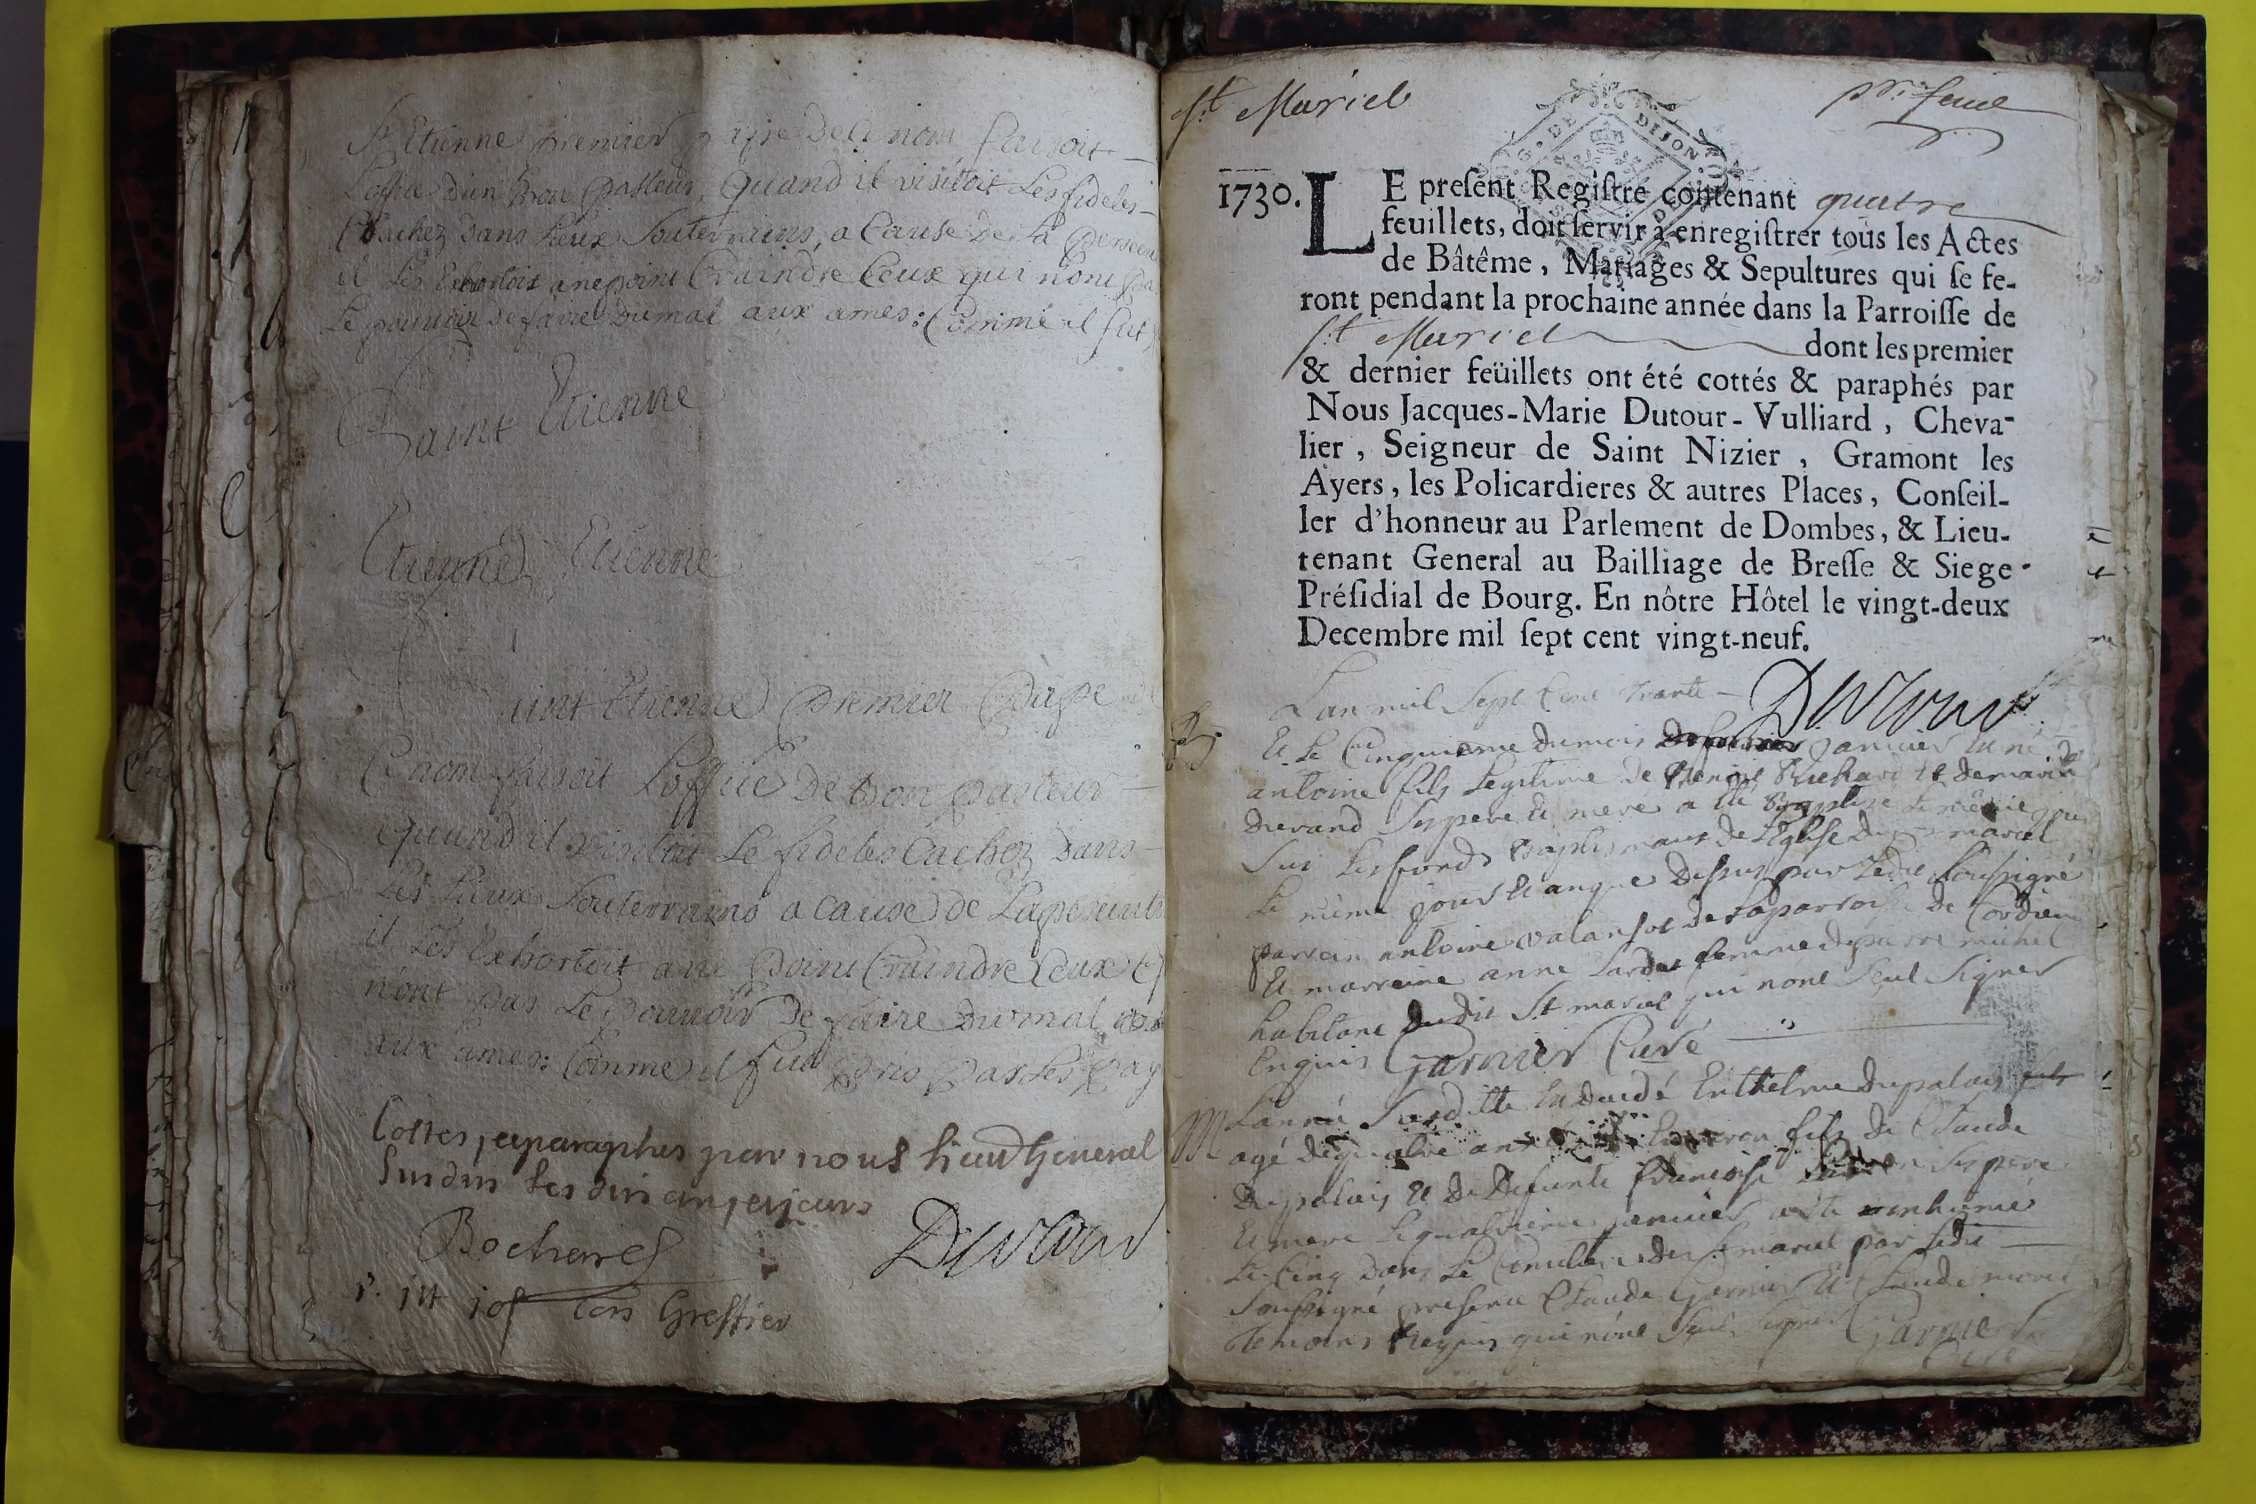 St Etienne premier pape de ce nom faisoit
L'office d'un bon pasteur, Quand il visitoit Les fideles
Cachez dans Lieux Souterrains, a Cause de la persecu
il Les Exhortoit a ne point Craindre Ceux qui n'ont pa
Le pouvoir de faire du mal aux ames: Comme il fut
Saint Etienne
Etienne Etienne
aint Etienne premier Pape de
Ce nom faisoit L'office De bon pasteur
Quand il visitoit Le fideles Cachez Dans
Les Lieux Souterrains a cause de La persecu
il Les Exhortoit a ne point Craindre Ceux q
n'ont pas Le pouvoir De faire Du mal
aux ames: Comme il fut pris par Les Pay
Cottes, et paraphes par nous Lieut General
Surdit Les dits an et jours
Bochard Dutour
Greffier
St Marcel pr feuil
DE DIJON
1730. LE preſent Regiſtre contenant quatre
feuillets, doit ſervir à enregiſtrer tous les Actes
de Bâtême, Mariages & Sepultures qui ſe fe-
ront pendant la prochaine année dans la Parroiſſe de
St Marcel dont les premier
& dernier feüillets ont été cottés & paraphés par
Nous Jacques-Marie Dutour-Vulliard, Cheva-
lier, Seigneur de Saint Nizier, Gramont les
Ayers, les Policardieres & autres Places, Conſeil-
ler d'honneur au Parlement de Dombes, & Lieu-
tenant General au Bailliage de Breſſe & Siege
Préſidial de Bourg. En nôtre Hôtel le vingt-deux
Decembre mil ſept cent vingt-neuf.
Dutour
L'an mil Sept Cent trante
B Et Le Cinquieme du mois Janvier Est né
antoine fils Legitime de Benoit Richard Et de marie
durand Ses pere Et mere a Eté Baptisé Le même jour
Sur Les fonds Baptismaux de L'Eglise de St marcel
Le même jour Et an que Dessus par Le dit Soussigné
parrain antoine valansot de La parroisse de Cordieu
Et marreine anne femme de pierre michel
habitant dudit St marcel qui n'ont Seut Signer
Enquis Garnier Curé
M L'année Susditte Est decedé Enthelme Dupalais
agé de quatre ans Environ fils de Claude
Dupalais Et de Defunte francoise Ses pere
Et mere Le quatrieme Janvier a été inhumé
Le Cinq Dans Le Cimetiere de St marcel par Le dit
Soussigné presens Claude Garnier Et Claude moret
Temoins Requis qui n'ont Seut Signer Garnier
Curé